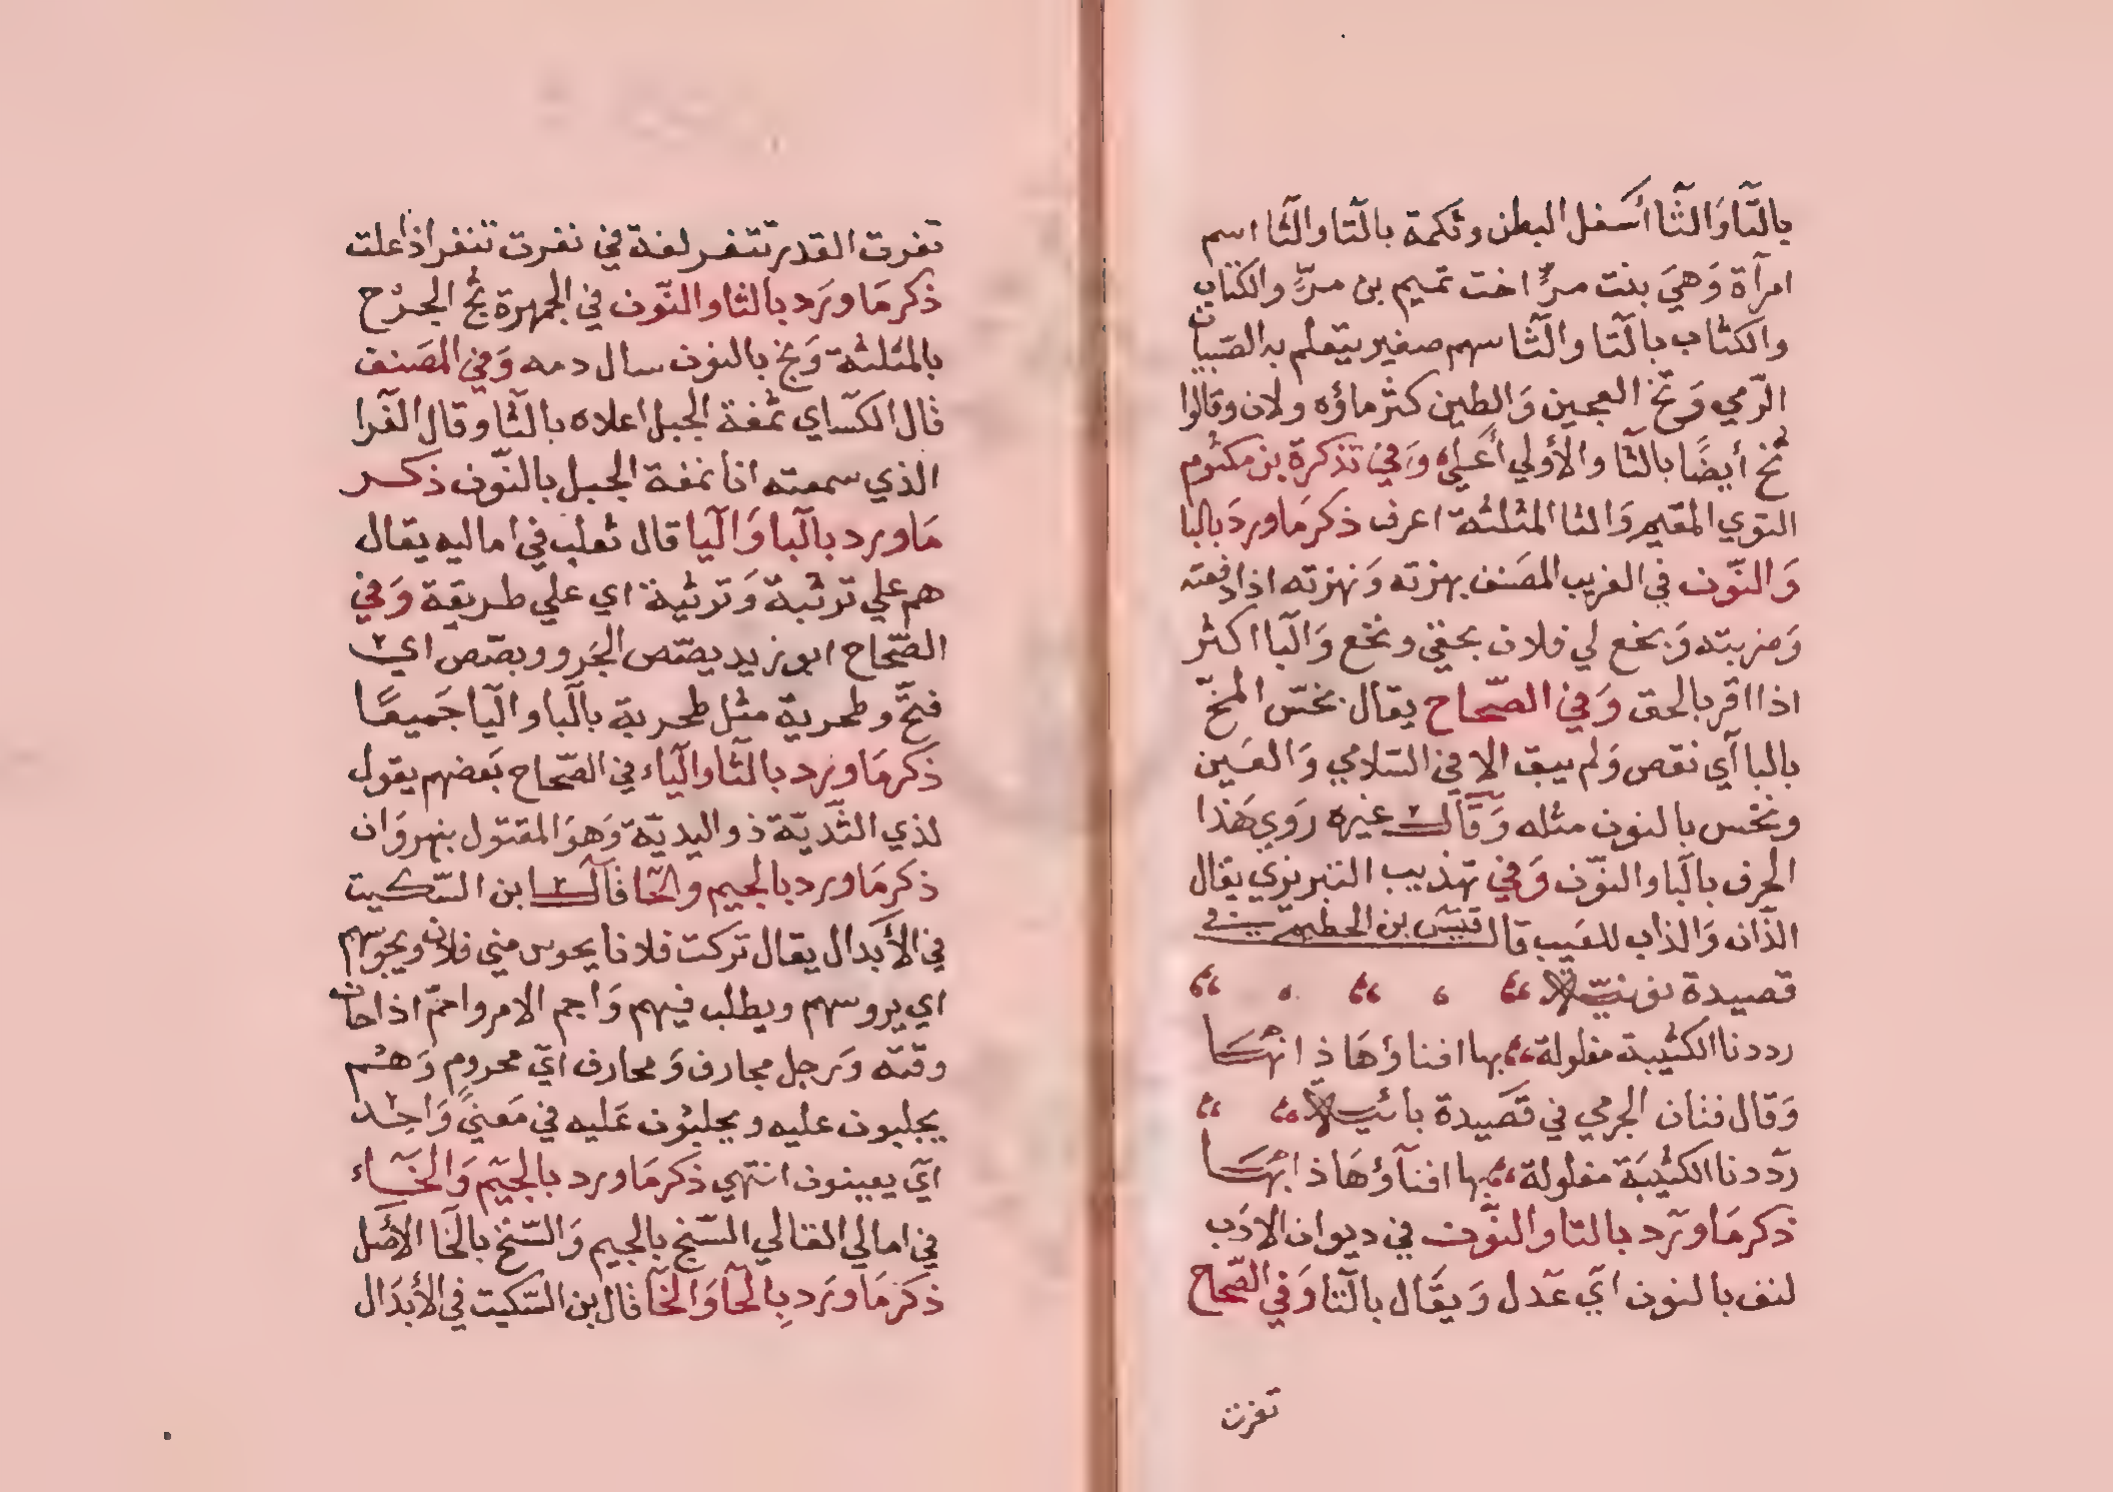 بالتّا وَالثّا أسَفل البطن وتكمة بالتا والثا اسم
امرآة وَهيَ بنت مرّ اخت تميم بن مرّ والكتاب
والكثاب بالتا والثا سهم صغير يتعلم به الصبيان
الرّمي وَتخ العجين وَالطين كثر ماؤه ولان وقالوا
ثخ أيضًا بالثا والأولي أعلي وَفي تذكرة بن مكتوم
التوي المقيم وَالثا المثلثة اعرف ذكر مَا وردَ بالبا
وَالنّون في الغريب المصَنف بهزته وَنهزته اذا دفعته
وَضربته وَبخع لي فلان بحقي ونخع وَالبا اكثر
اذا اقر بالحق وَفي الصّحاح يقال بخسّ المخّ
بالبا آي نقص وَلم يبق الا في السّلامي وَالعَين
ونخس بالنون مثله وَقال غيره روَي هَذا
الحرف بالبا والنوّن وَفي تهذيب التبريزي يقال
الذّان وَالذاب للعَيب قال قيسّ بن الخطيم في
قصيدة نونيّة
رددنا الكتيبة مفلولة بها افناؤهَا ذانهَا
وَقال فنان الجرمي في قصَيدة بائية
ردّدنا الكتيبَة مفلولة بها افنآؤهَا ذابهَا
ذكر مَا وَرد بالتا والنوّن في ديوان الادَب
لنف بالنون ايَ عَدل وَيقَال بالتا وَفي الصّحاح
تغرت
تغرت القدر تتغر لغة في نغرت تنغر اذا علت
ذكر مَا ورَد بالثا والنوّن في الجمهرة ثجّ الجرْح
بالمثلثة وَنج بالنون سال دمه وَفي المصَنف
قال الكسّاي ثمغة الجبل اعلاه بالثّا وقال الفّرا
الذي سمعته انا نمغة الجبل بالنوّن ذكر
مَا ورد بالبا وَاليا قال ثعلب في اماليه يقال
هم علي ترتبة وَترتية اي علي طريقة وَفي
الصّحاح ابو زيد يصّص الجَرو وبصّص اي
فتحّ وطحرية مثل طحربة بالبا واليا جَميعًا
ذكر مَا ورد بالثّا والياء في الصّحاح بَعضهم يقول
لذي الثّديّة ذو اليديّة وَهوَ المقتول بنهروَان
ذكر مَا ورد بالجيم والحّا قال ابن السّكيت
في الأبَدال يقال تركت فلانا يحوس مني فلان ويجوسهم
اي يروسهم ويطلب فيهم وَاجم الامر واحمّ اذا حان
وقته وَرجل مجارف وَمحارف ايَ محروم وَهم
يجلبون عليه ويحلبون عَليه في مَعنيً وَاحِد
ايَ يعينون انتهي ذكر مَا ورد بالجيَم وَالخَاء
في امالي القالي السّنج بالجيم وَالسّنخ بالخا الأصَل
ذكرَ مَا ورَد بِالحَا وَالخَا قال بن السّكيت في الأبدَال